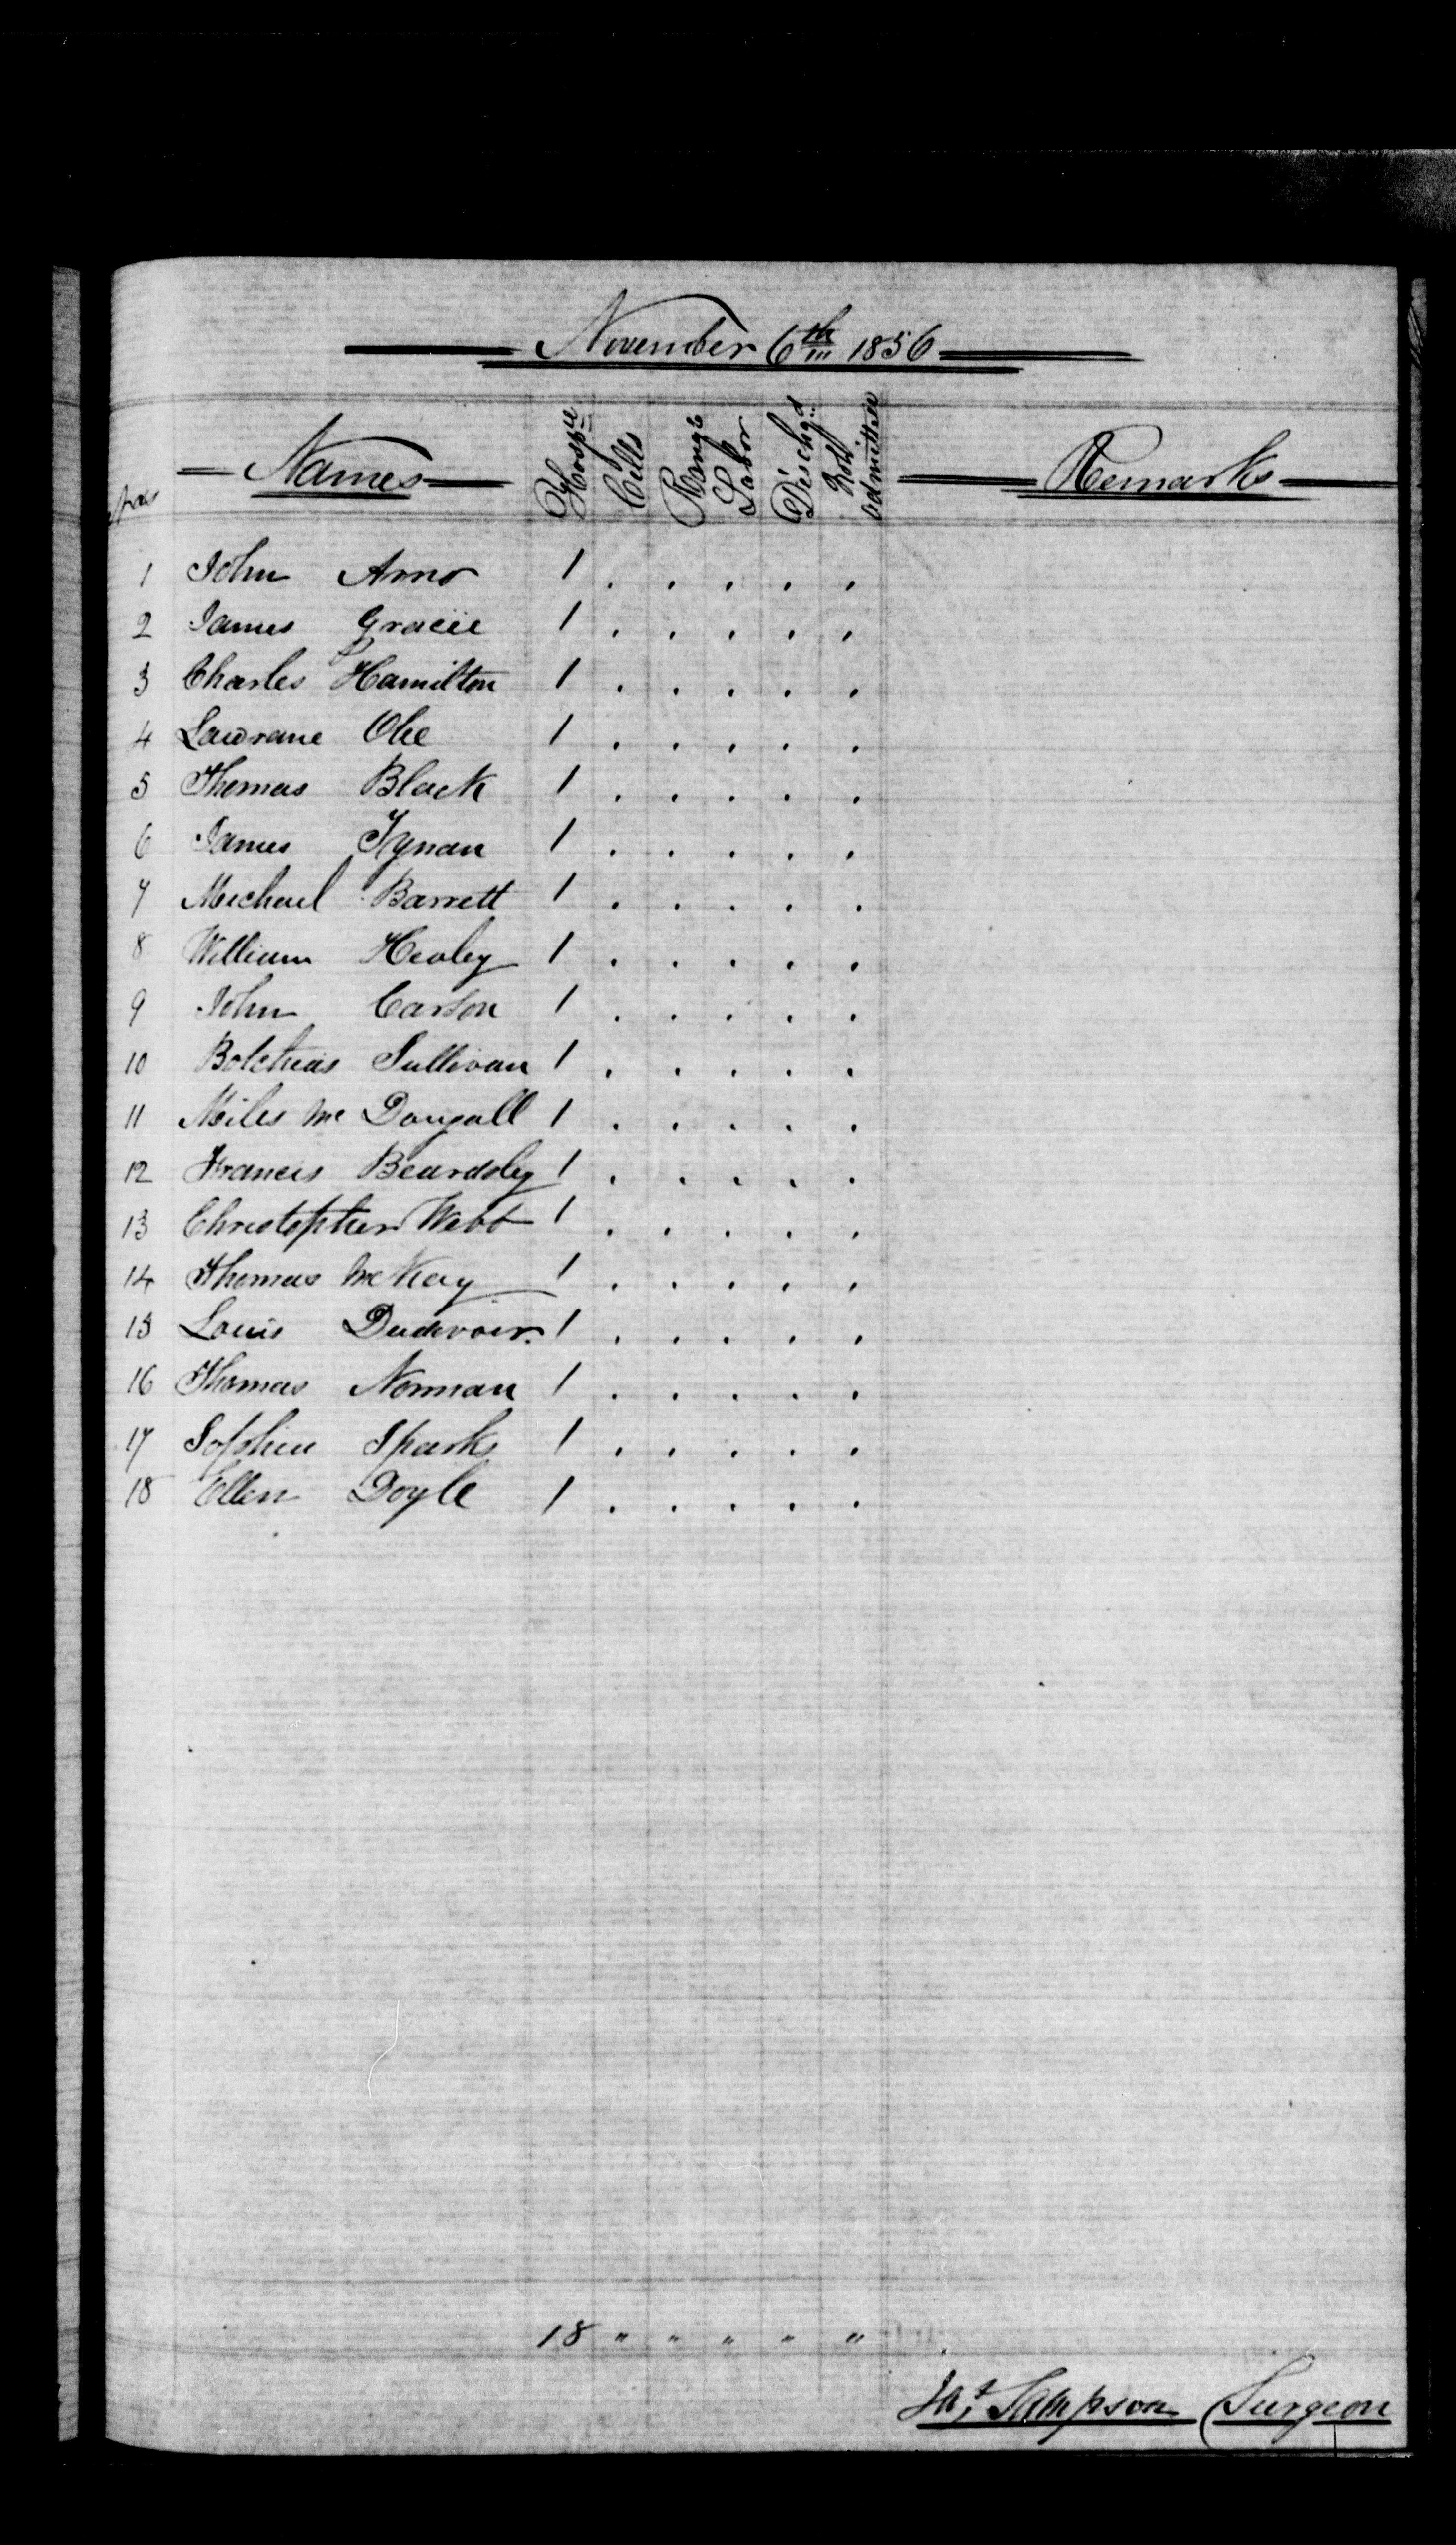 November 6th 1856
Nos Names Hospl Cells Rem'g Labor Dischgd Not Admitted Remarks
1 John Arno 1 . . . . .
2 James Gracie 1 . . . . .
3 Charles Hamilton 1 . . . . .
4 Lawrane Ohe 1 . . . . .
5 Thomas Black 1 . . . . .
6 James Tynan 1 . . . . .
7 Michael Barrett 1 . . . . .
8 William Healey 1 . . . . .
9 John Carson 1 . . . . .
10 Sullivan 1 . . . . .
11 Miles Mc Dougall 1 . . . . .
12 Francis Beardsley 1 . . . . .
13 Christopher Webb 1 . . . . .
14 Thomas McKay 1 . . . . .
15 Louis Dudevoir 1 . . . . .
16 Thomas Norman 1 . . . . .
17 Sophia Sparks 1 . . . . .
18 Ellen Doyle 1 . . . . .
18 " " " " "
Jas Sampson Surgeon